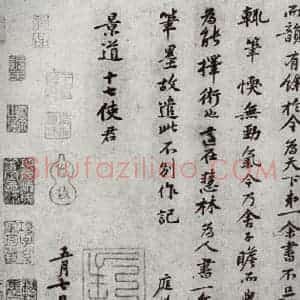 而韻有餘於今為天下第一余書不足
輒筆愞無勁氣今乃舍子瞻而
為能擇術也適在慧林為人書一
筆墨故遣此不別作記
庭
景道十七使君
五月七日
Shufaziliao.com